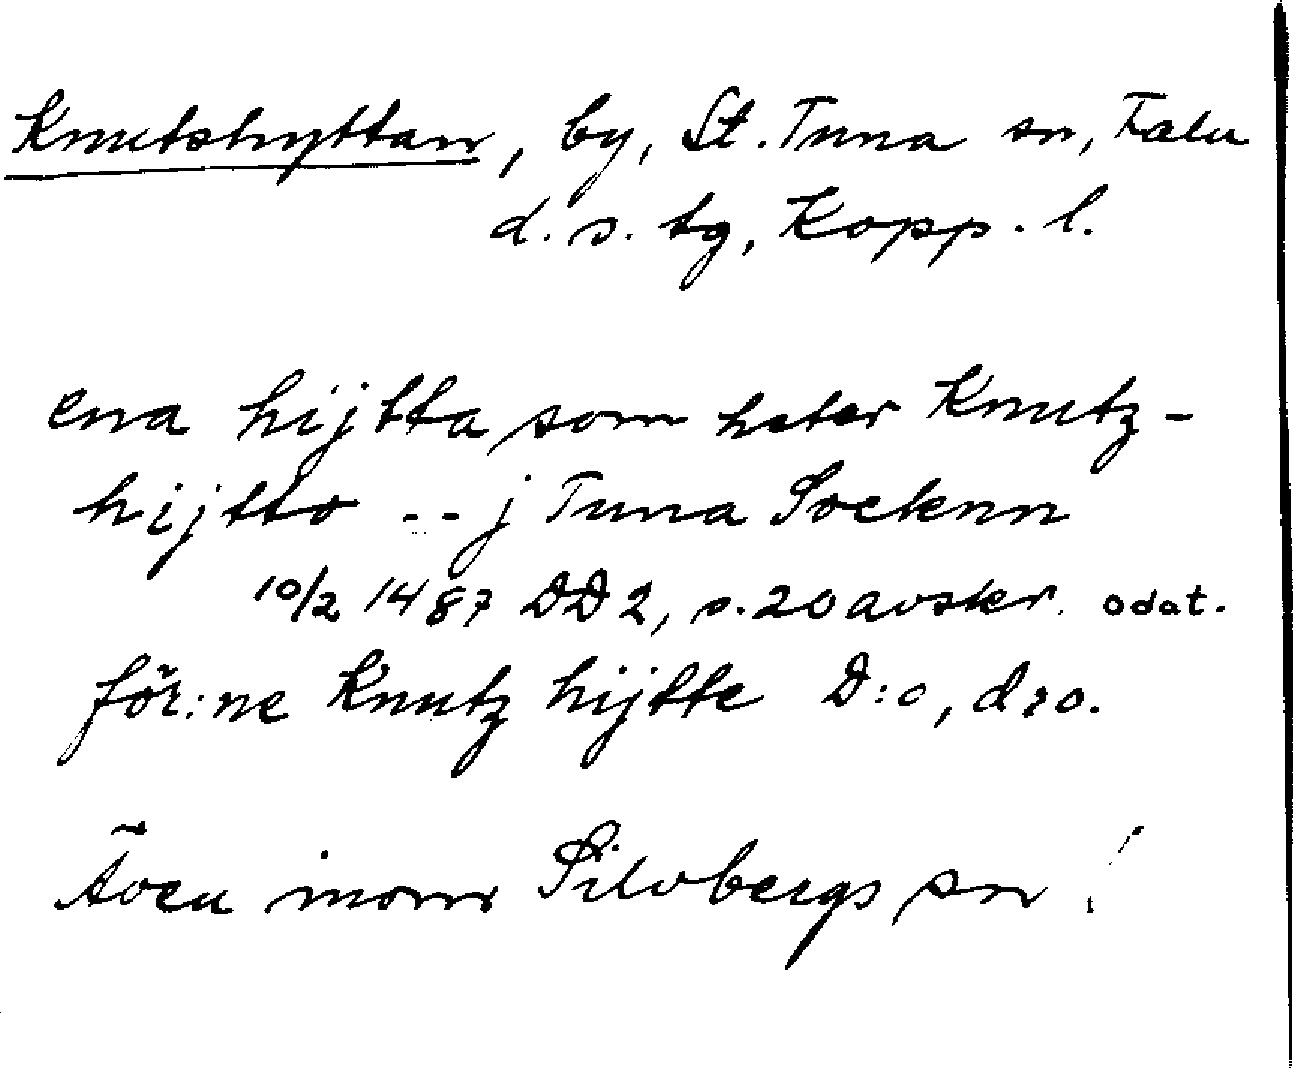 Knutshyttan, by, St. Tuna sn, Falu
d. s. tg, Kopp. l.
ena hijtta som heter Knutz-
hijtto -- j Tuna Socknn
10/2 1487 DD 2, s. 20 avskr. odat.
för:ne Knutz hijtte D:o, d:o.
Även inom Silvbergs sn!